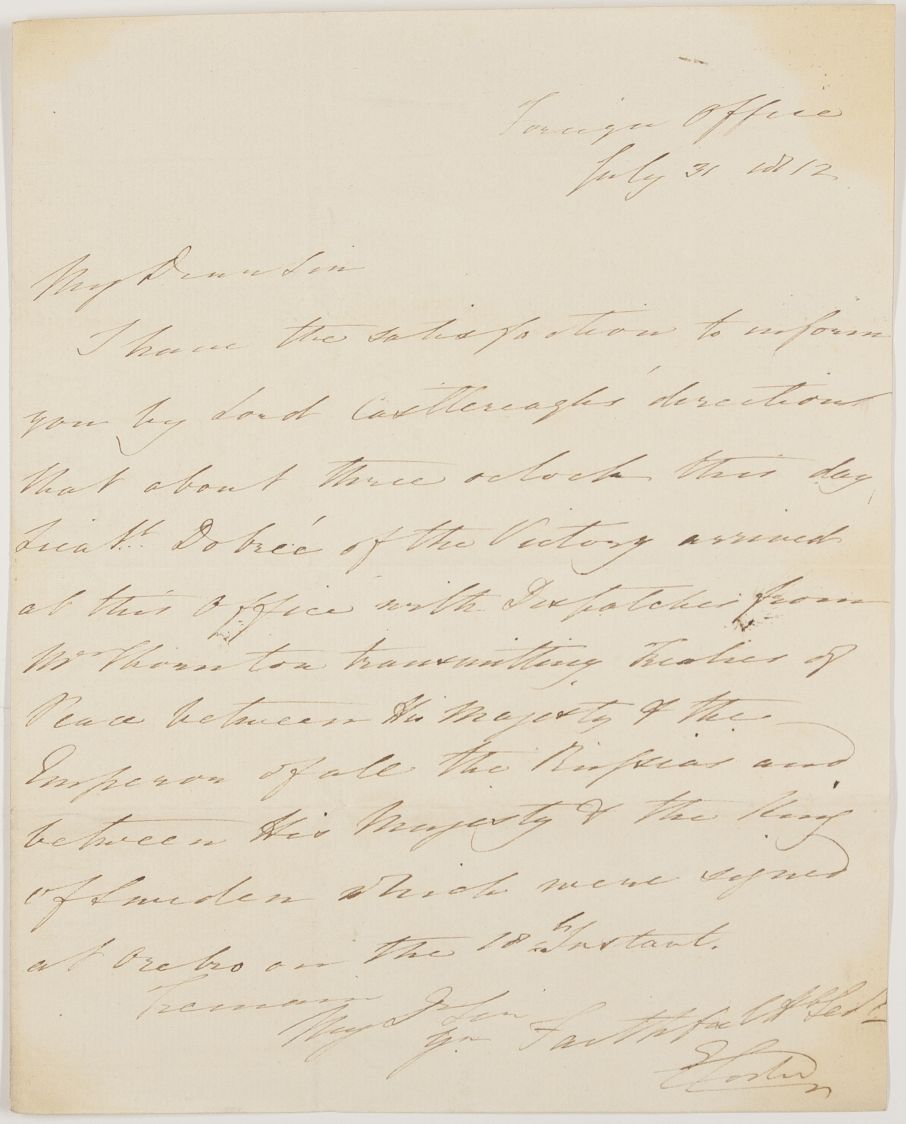 Foreign Office
July 31 1812
My Dear Sir
I have the satisfaction to inform
you by Lord Castlereagh's direction
that about three oclock this day
Lieut. Dobreé of the Victory arrived
at this Office with Dispatches from
Mr Thornton transmitting Treaties of
Peace between His Majesty & the
Emperor of all the Russias and
between His Majesty & the King
of Sweden which were signed
at Orebro on the 18th Instant.
I remain
My Dr Sir
yr Faithful